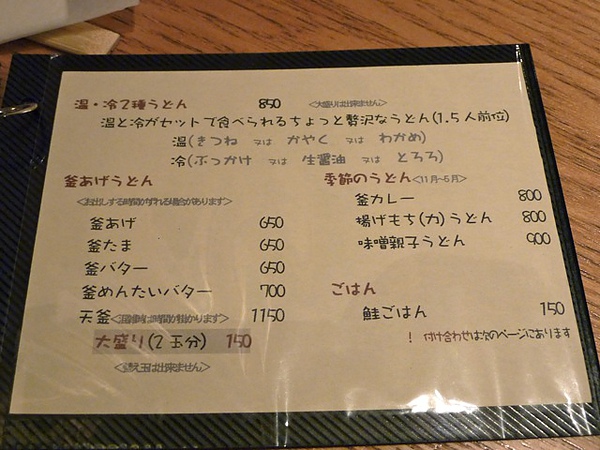 温・冷2種うどん 850 <大盛りは出来ません>
温と冷がセットで食べられるちょっと贅沢なうどん(1.5人前位)
温(きつね 又は かやく 又は わかめ)
冷(ぶっかけ 又は 生醤油 又は とろろ)
釜あげうどん
<お出しする時間がずれる場合があります>
釜あげ 650
釜たま 650
釜バター 650
釜めんたいバター 700
天釜<混雑時は時間が掛かります> 1150
大盛り(2玉分) 150
<替え玉は出来ません>
季節のうどん<11月~5月>
釜カレー 800
揚げもち(力)うどん 800
味噌親子うどん 900
ごはん
鮭ごはん 150
! 付け合わせは次のページにあります